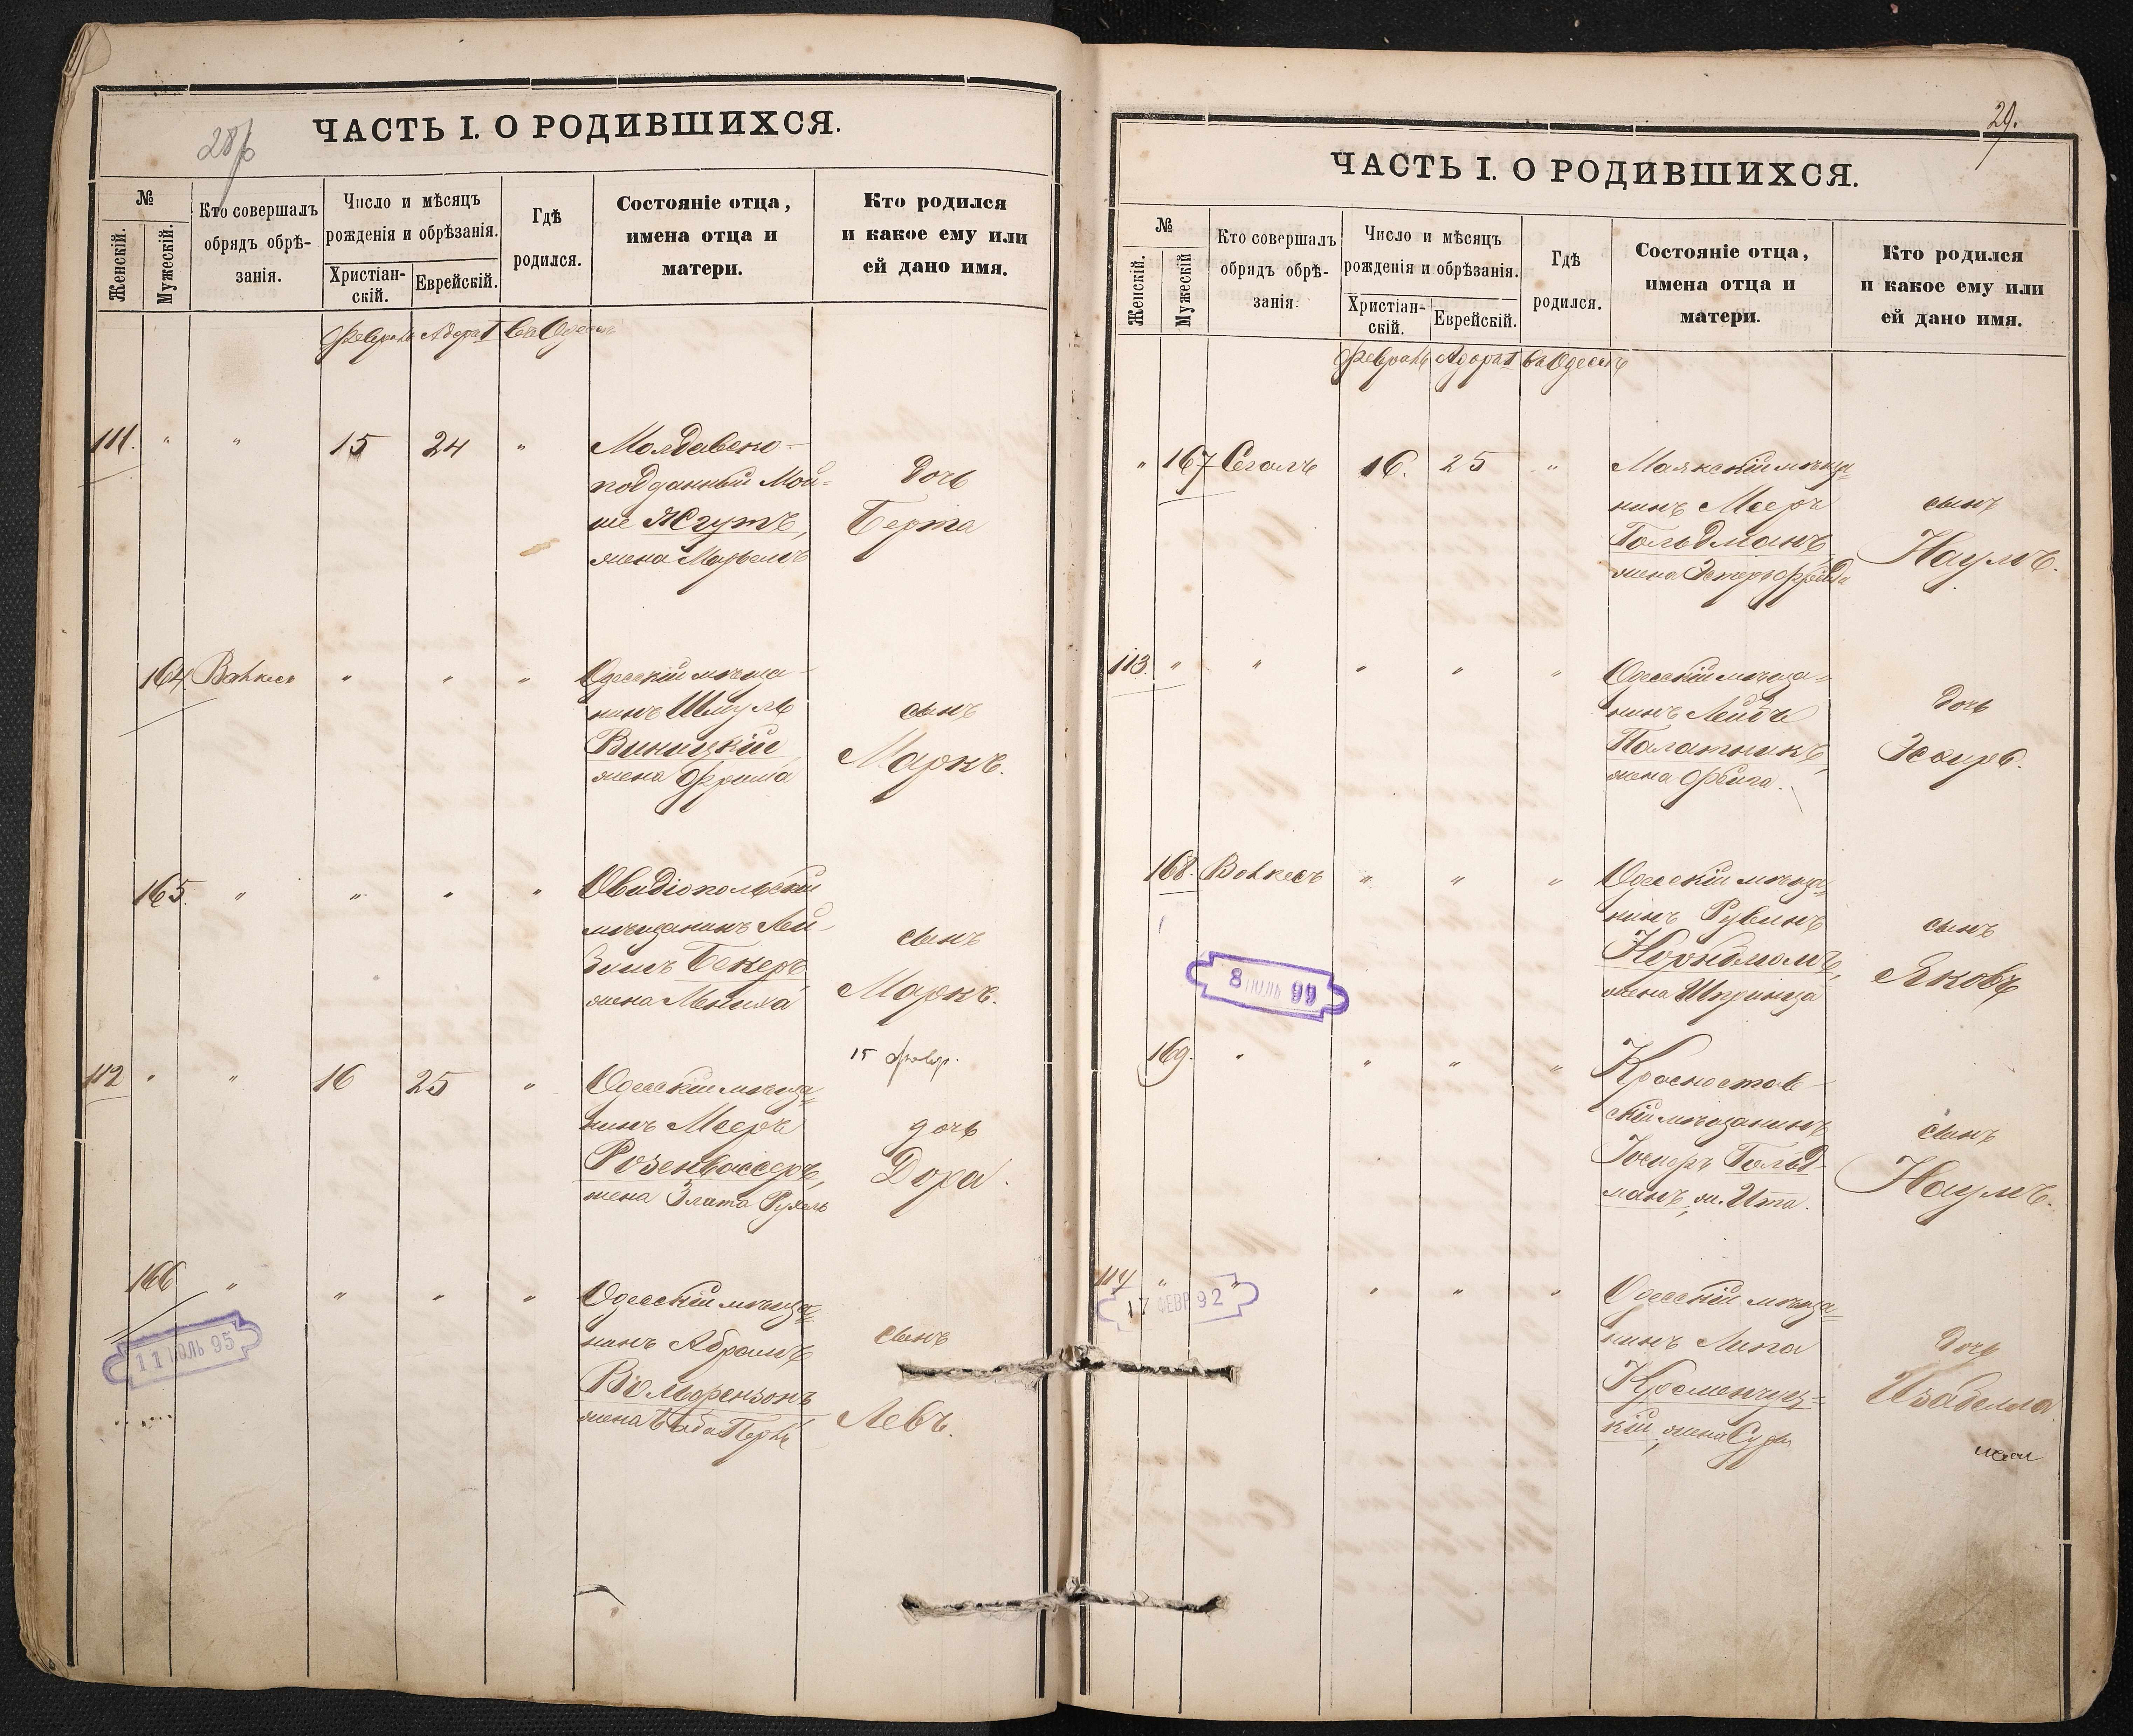 28
ЧАСТЬ I. О РОДИВШИХСЯ.
№
Женскій.
Мужескій.
Кто совершалъ
обрядъ обрѣ-
занія.
Число и мѣсяцъ
рожденія и обрѣзанія.
Христіан-
скій.
Еврейскій.
Гдѣ
родился.
Состояніе отца,
имена отца и
матери.
Кто родился
и какое ему или
ей дано имя.
Февраль Адара I въ Одессѣ
111. " " 15 24 " Молдавско-
подданный Мой-
ше Жгутъ,
жена
дочь
Берта
164 " " " Одесскій мѣща-
нинъ Шмуль
Виницкій
жена Фрима
сынъ
Маркъ.
165. " " " " Овидіопольскій
мѣщанинъ Лей-
Бекеръ
жена
сынъ
Маркъ.
15 февр.
112 " " 16 25 " Одесскій мѣща=
нинъ Мееръ
Розенвассеръ,
жена Злата Рухль
дочь
Дора.
166 " " " " Одесскій мѣща=
нинъ Абрамъ
Вольфензонъ
жена
сынъ
Левъ.
11 ІЮЛЬ 95
29.
ЧАСТЬ I. О РОДИВШИХСЯ.
№
Женскій.
Мужескій
Кто совершалъ
обрядъ обрѣ-
занія.
Число и мѣсяцъ
рожденія и обрѣзанія.
Христіан-
скій.
Еврейскій.
Гдѣ
родился.
Состояніе отца,
имена отца и
матери.
Кто родился
и какое ему или
ей дано имя.
Февраль Адара I въ Одессѣ
" 167 Сегалъ 16. 25 " Маякскій мѣща=
нинъ Мееръ
Гольдманъ
жена Эстеръ Фрейда
сынъ
Наумъ.
113. " " " " " Одесскій мѣща=
нинъ Лейбъ
Палатникъ,
жена Фейга.
дочь
Эсѳирь.
168. " " " Одесскій мѣща=
нинъ Рувинъ
Норнблюмъ,
жена Шпринца
сынъ
Яковъ
8 ІЮЛЬ 99
169. " " " " Красностав-
скій мѣщанинъ
Іосифъ Гольд-
манъ, ж. Ита.
сынъ
Наумъ.
114 " " " " " Одесскій мѣща=
нинъ Липа
Кременчуц=
кій, жена Сура
дочь
Изабелла
17 ФЕВР 92